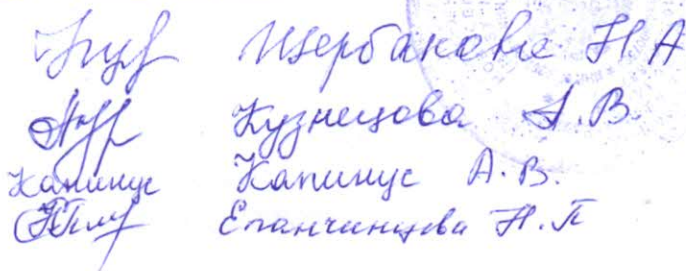 Щербакова Н А
Кузнецова А.В.
Капинус Капинус А.В.
Епанчинцева Н.П